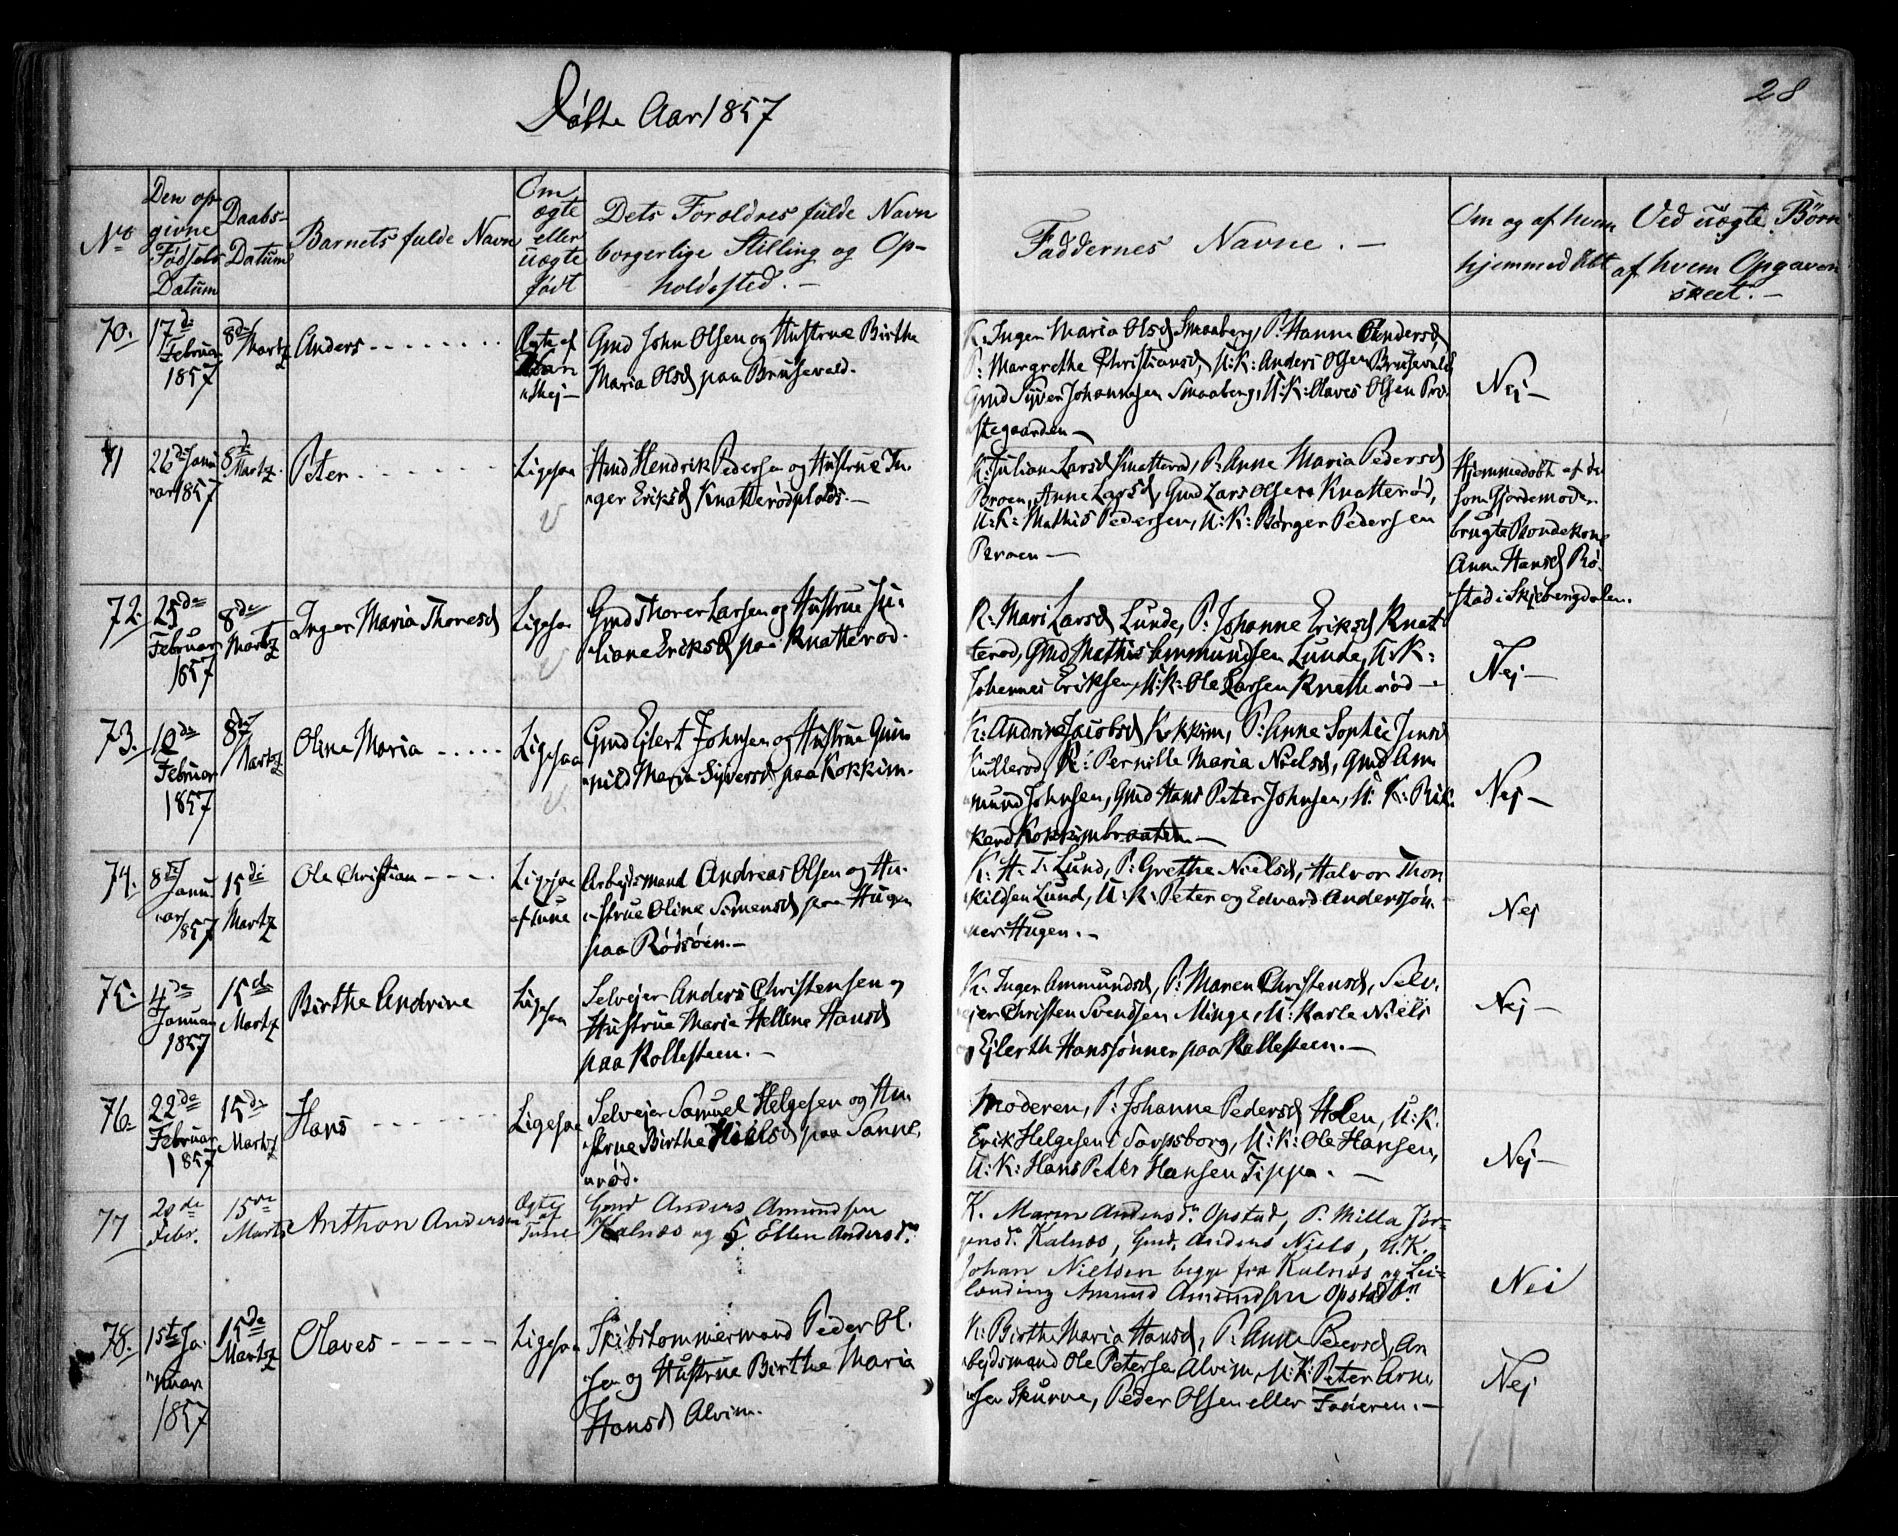 Døbte Aar 1857
28
No
Den op
givne
Fødsels
Datum
Daabs-
Datum
Barnets fulde Navn
Om
ægte
eller
uægte
født
Dets Forældres fulde Navn
borgerlige Stilling og Op-
holdssted. –
Faddernes Navne. –
Om og af hvem
hjemmedøbt
Ved uægte Børn
af hvem Opgaven
skeet. –
70.
17de
Februar
1857
8de
Martz
Anders
Ægte af
Gmd John Olsen og Hustrue Birthe
Maria Olsd paa Brusevald.
K: Ingen Maria Olsd Smaaberg, P: Hanne Andersd,
P: Margrethe Christiansd, U: K: Anders Olsen Brusevald,
Gmd Syver Johannesen Smaaberg, U: K: Olaves Olsen Pre-
stegaarden –
Nej –
71
26de Janu
uar 1857
8de
Martz
Peter
Ligesaa
Hmd Hendrik Pedersen og Hustrue In-
ger Eriksd Knatterødplads. –
K: Juliane Larsd Knatterød, P: Anne Maria Pedersd
Broen, Anne Larsd, Gmd Lars Olsen Knatterød,
U: K: Mathis Pedersen, U: K: Børger Pedersen
Broen –
Hjemmedøbt af den
som Gjordemoder
brugte Bondekone
Anne Hansd Rø-
stad i Skjebergdalen.
72.
25de
Februar
1857
8de
Martz
Inger Maria Thoresd
Ligesaa
Gmd Thorer Larsen og Hustrue Ju-
liane Eriksd paa Knatterød.
K: Mari Larsd Lunde, P: Johanne Eriksd Knat-
terød, Gmd Mathis Ammundsen Lunde, U: K:
Johannes Eriksen, U: K: Ole Larsen Knatterød –
Nej –
73.
10de
Februar
1857
8de
Martz
Oline Maria
Ligesaa
Gmd Ejlert Johnsen og Hustrue Gun-
nild Maria Syversd paa Kokkim.
K: Andrine Jacobsd Kokkim, P: Anne Sophie Jensd
Kullerød, K: Pernille Maria Nielsd, Gmd Am
mund Johnsen, Gmd Hans Peter Johnsen, U: K: Rik-
kard Kokkimbraaten –
Nej –
74.
8de
Janu
uar
1857
15de
Martz
Ole Christian
Ligesaa
af Tune
Arbejdsmand Andreas Olsen og Hu-
strue Oline Simensd paa Hugen
paa Rødsøen. –
K: H. T. Lund, P: Grethe Nielsd, Halvor Thor
kildsen Lund, U: K: Peter og Edvard Anderssøn-
ner Hugen. –
Nej
75.
4de
Januar
1857
15de
Martz
Birthe Andrine
Ligesaa
Selvejer Anders Christensen og
Hustrue Maria Hellene Hansd
paa Rollesteen. –
K: Inger Ammundsd, P: Maren Christensd, Selv-
ejer Christen Svendsen Minge, U: Karle Niels
og Ejlerth Hanssønner paa Rollesteen. –
Nej –
76.
22de
Februar
1857
15de
Martz
Hans
Ligesaa
Selvejer Samuel Helgesen og Hu-
strue Birthe Nielsd paa Sanne-
rød.
Moderen, P: Johanne Pedersd Holen, U: K.
Erik Helgesen i Sarpsborg, U: K: Ole Hansen,
U: K: Hans Peter Hansen Tippa. –
Nej –
77
20de
Febr.
15de
Marts
Anthon Andersen
Ægte
Tune
Gmd Anders Amundsen
Kalnæs og Ellen Andersd.
K. Maren Andersdr. Opstad, P. Milla Jør-
gensd. Kalnæs, Gmd. Anders Niels, U.K.
Johan Nielsen begge fra Kalnæs og Lei-
lænding Amund Amundsen Opstad
Nei
78.
1ste Ja-
nuar
1857
15de
Martz
Olaves
Ligesaa
Skibstømmermand Peder Ol-
sen og Hustrue Birthe Maria
Hansd Alvim.
K: Birthe Maria Hansd, P: Anne Pedersd, Ar
bejdsmand Ole Petersen Alvim, U: K: Peter Arne
sen Skurve, Peder Olsen eller Faderen. –
Nej